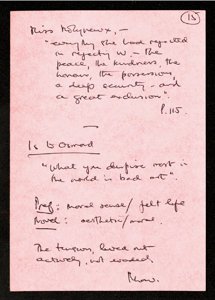 13
Miss Molyneux, —
"everything she had rejected
in rejecting W. — the
peace, the kindness, the
honour, the possession,
a deep security – and
a great exclusion"
P. 115.
Is to Osmond
"What you despise most in
the world is bad art".
Pref: moral sense / felt life
novel: aesthetic/moral.
The tension, lived out
actively, not evaded.